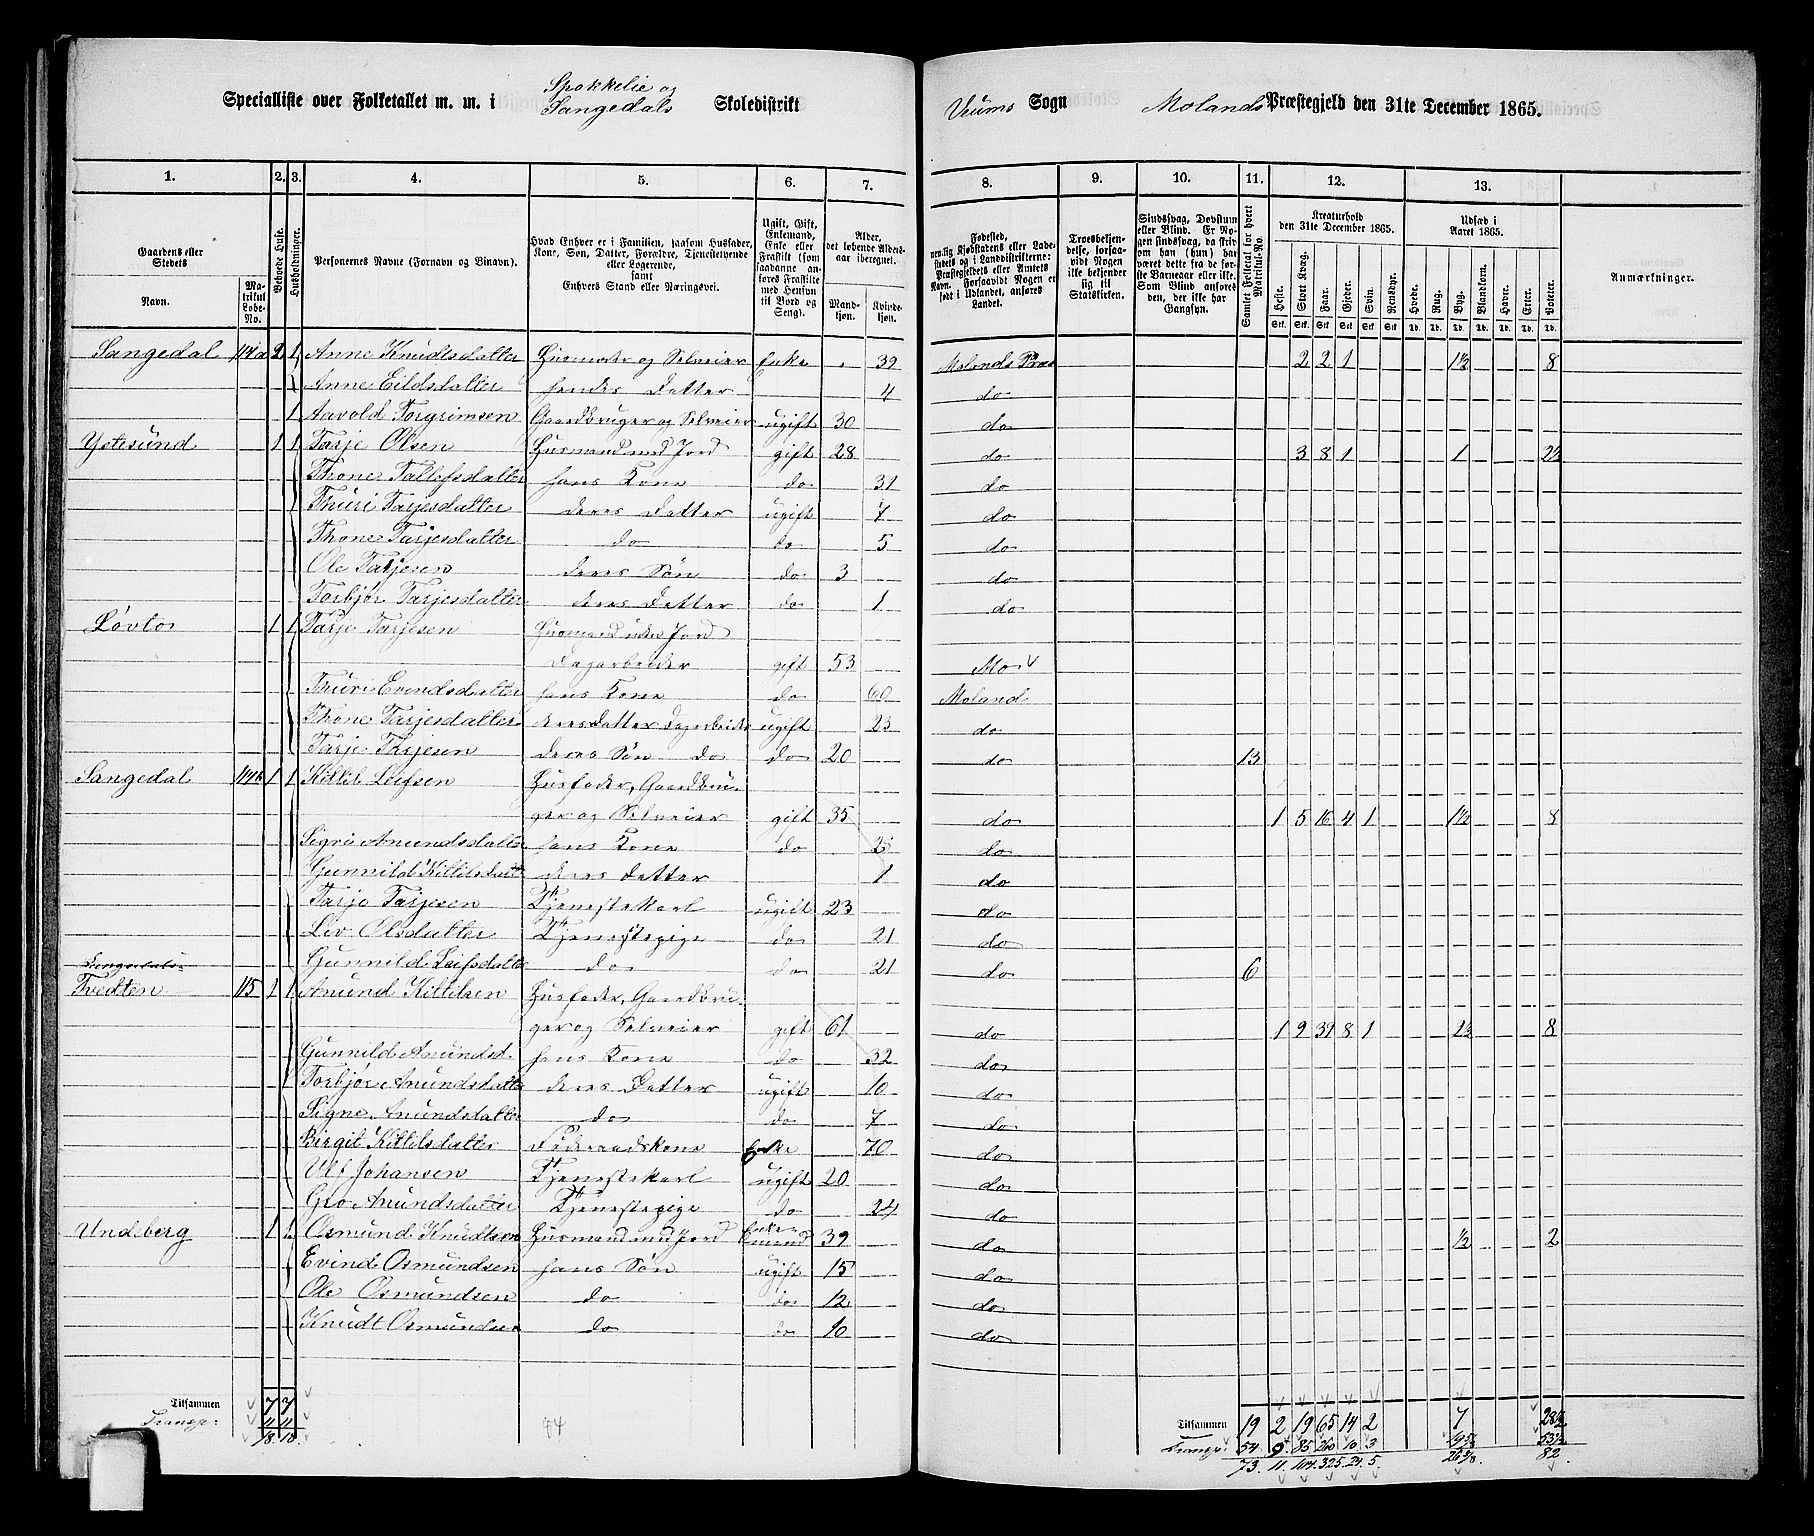 Specialliste over Folketallet m. m. i Spokkelie og Sangedals Skoledistrikt
Veums Sogn Molands Præstegjeld den 31te December 1865.
1. 2. 3. 4. 5. 6. 7. 8. 9. 10. 11. 12. 13.
Gaardens eller Stedets Navn.
Matrikul Løbe-No.
Beboede Huse.
Husholdninger.
Personernes Navne (Fornavn og Binavn).
Hvad Enhver er i Familien, saasom Husfader, Kone, Søn, Datter, Forældre, Tjenestetyende eller Logerende, samt Enhvers Stand eller Næringsvei.
Ugift, Gift, Enkemand, Enke eller Fraskilt (som saadanne anføres Fraskilte med Hensyn til Bord og Seng).
Alder, det løbende Aldersaar iberegnet.
Mandkjøn. Kvindekjøn.
Troesbekjendelse, forsaavidt Nogen ikke bekjender sig til Statskirken.
Sindssvag, Døvstum eller Blind.
Kreaturhold den 31te December 1865.
Heste. Stort Kvæg. Faar. Gjeder. Svin. Rensdyr.
Udsæd i Aaret 1865.
Hvede. Rug. Byg. Blandkorn. Havre. Erter. Poteter.
Anmærkninger.
Sangedal 114a 2 1 Anne Knudtsdatter Huusmoder og Selveier Enke 39 Molands Præs 2 2 1 1½ 8
Anne Eildsdatter hendes Datter 4 do
1 Aavold Torgrimsen Gaardbruger og Selveier ugift 30 do
Ystesund 1 1 Tarje Olsen Husmand med Jord gift 28 do 3 8 1 1 2½
Thone Tallefsdatter hans Kone do 31 do
Thuri Tarjesdatter deres Datter ugift 7 do
Thone Tarjesdatter do do 5 do
Ole Tarjesen deres Søn do 3 do
Torbjør Tarjesdatter deres Datter do 1 do
Løvlo 1 1 Tarje Tarjesen Husmand uden Jord
Dagarbeider gift 53 Mo
Thuri Evindsdatter hans Kone do 60 Moland
Thone Tarjesdatter deres Datter Dagarbeider ugift 23 do
Tarje Tarjesen deres Søn do do 20 do 13
Sangedal 114b 1 1 Kittil Leifsen Husfader, Gaardbru-
ger og Selveier gift 35 do 1 5 16 4 1 1½ 8
Sigri Anundsdatter hans Kone do do
Gunnild Kittilsdatter deres Datter 1 do
Tarje Tarjesen Tjenestekarl ugift 23 do
Liv Olsdatter Tjenestepige do 21 do
Gunnild Leifsdatter do do 21 do 6
Tvedten 115 1 1 Anund Kittilsen Husfader, Gaardbru-
ger og Selveier gift 61 do 1 9 39 8 1 2½ 8
Gunnild Anundsd. hans Kone do 32 do
Torbjør Anundsdatter deres Datter ugift 10 do
Signe Anundsdatter do do 7 do
Birgit Kittilsdatter Føderaadskone Enke 70 do
Ulf Johansen Tjenestekarl ugift 20 do
Gro Anundsdatter Tjenestepige do 24 do
Undeberg 1 1 Osmund Knudtsen Husmand med Jord Enkemand 39 do ½ 2
Evind Osmundsen hans Søn ugift 15 do
Ole Osmundsen do do 12 do
Knudt Osmundsen do do 10 do
Tilsammen 7 7 Tilsammen 19 2 19 65 14 2 7 28½
Transp: 11 11 Transp: 54 9 85 260 10 3 53½
18. 18. 73. 11. 104. 325. 24. 5. 82